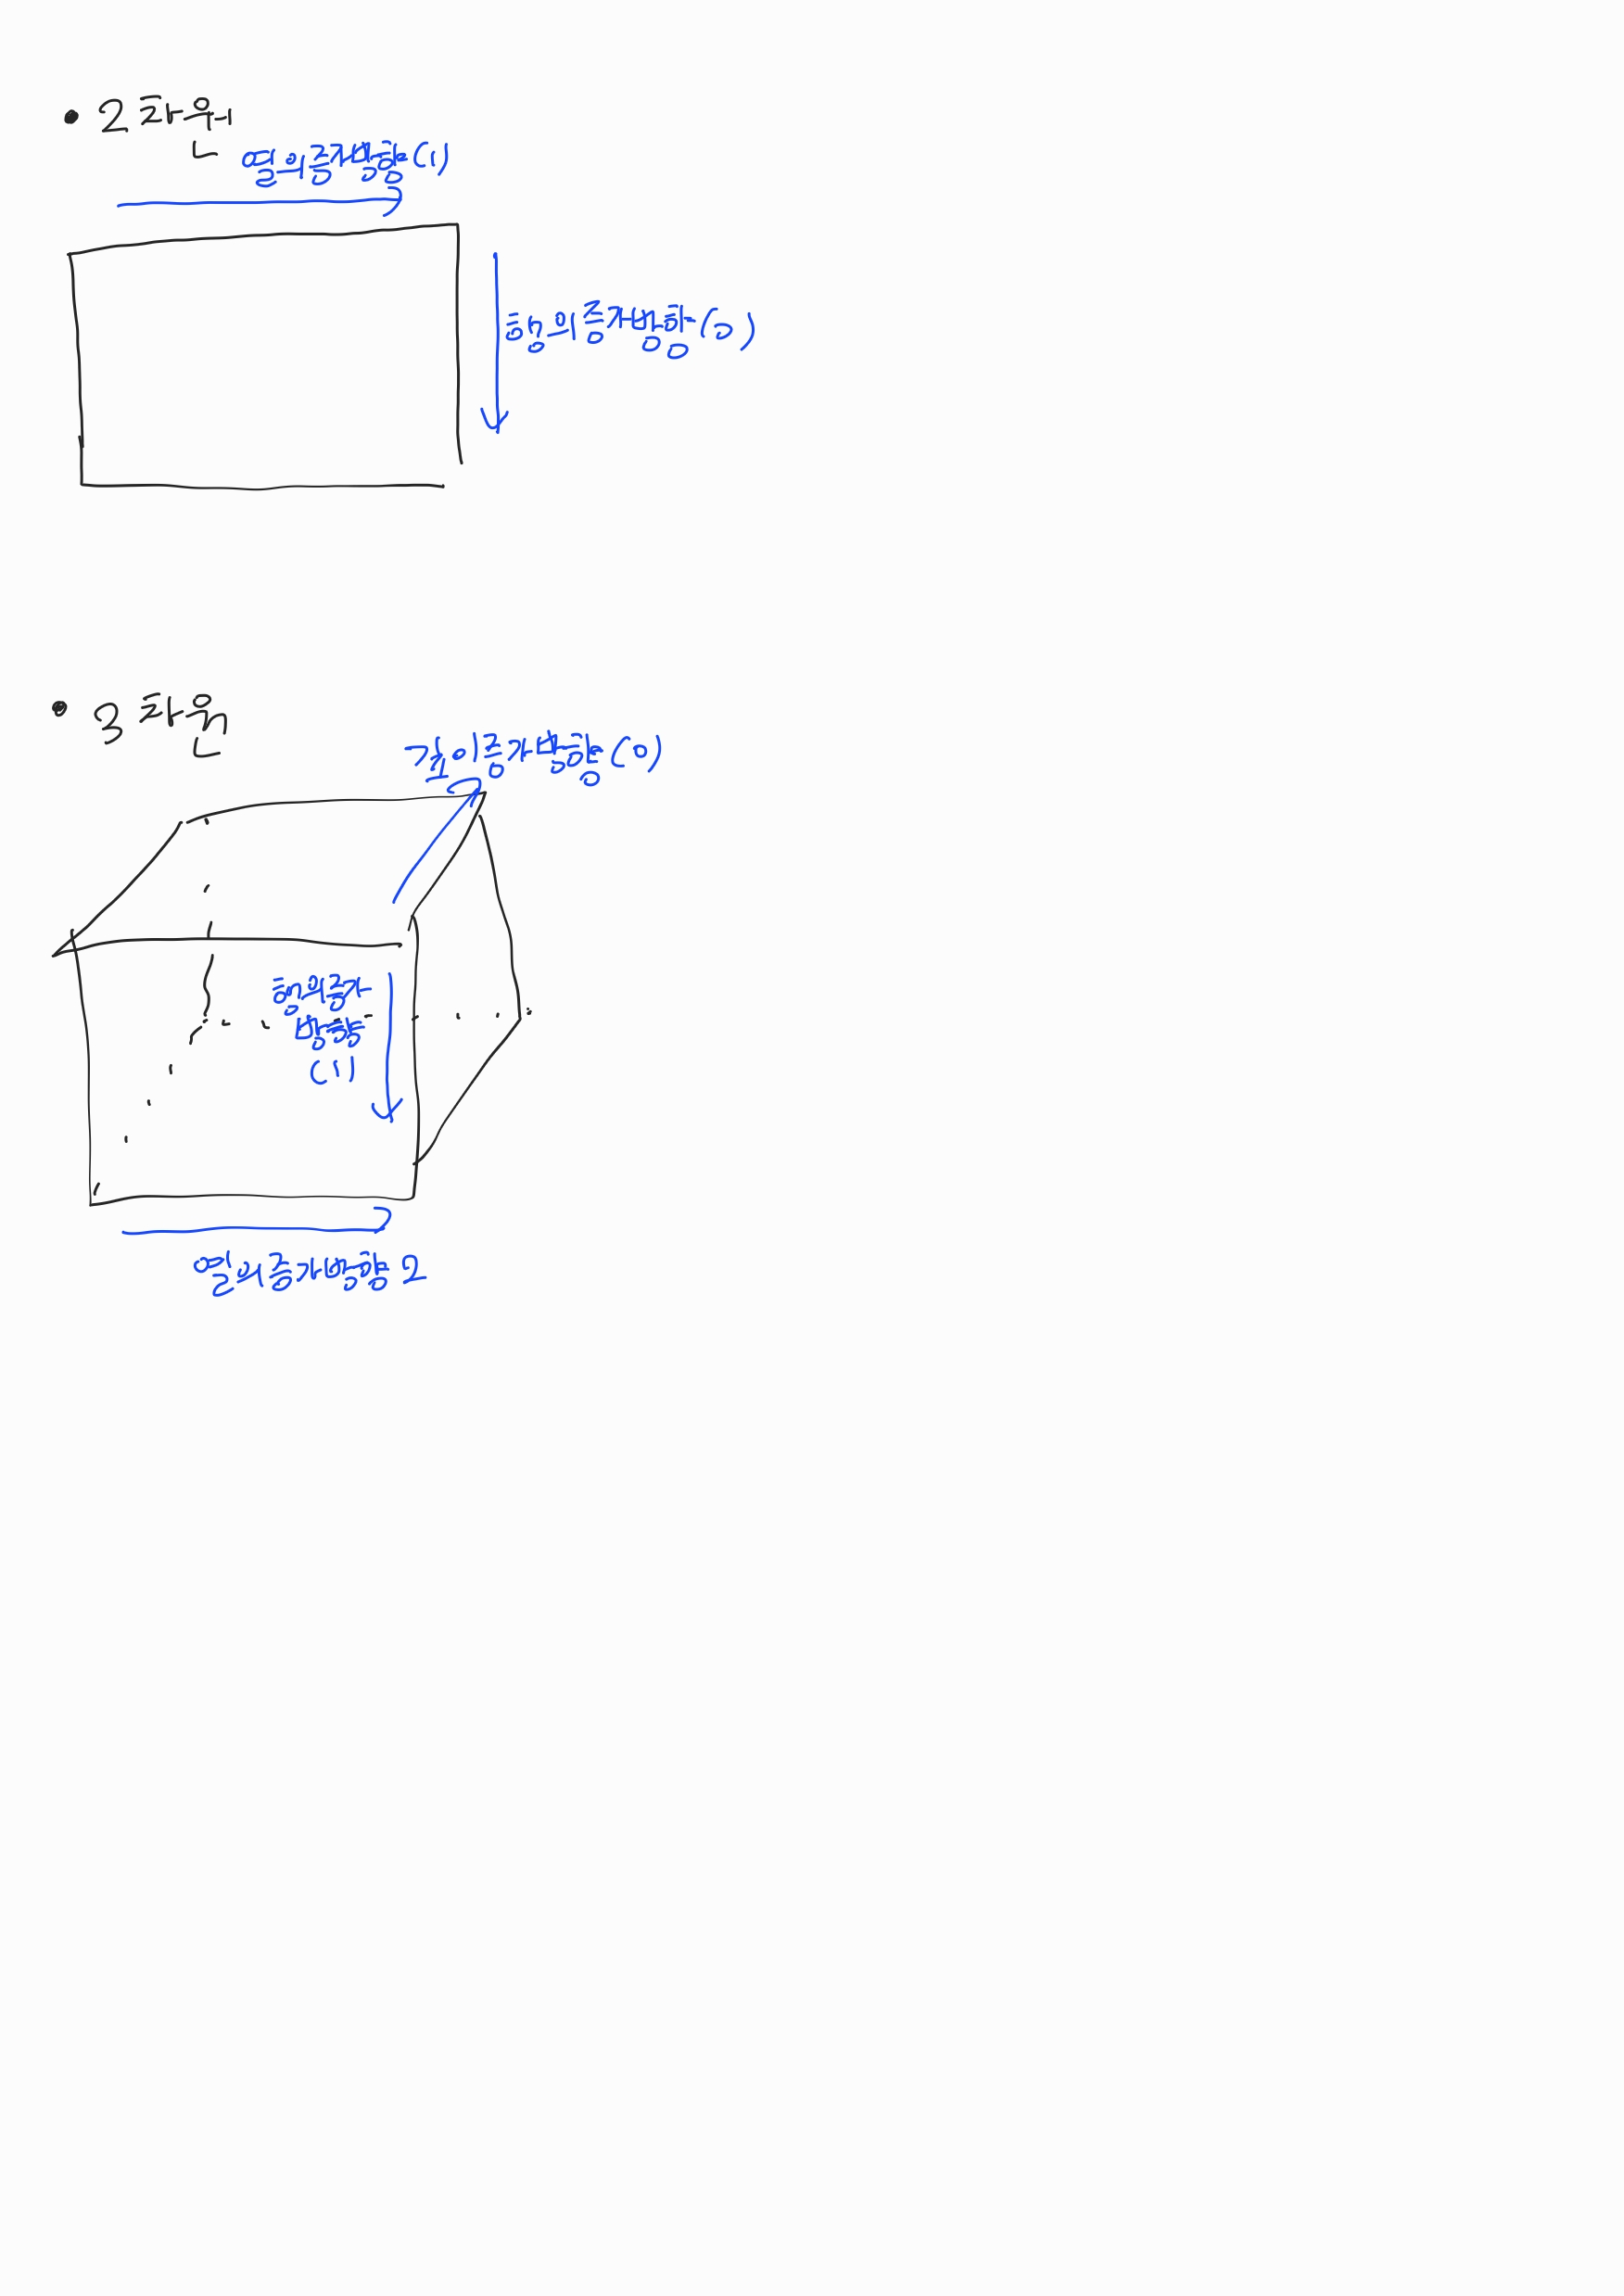 2차원
열의증가방향(1)
행의증가방향(0)
3차원
깊이증가방향(0)
행의증가
방향
(1)
열의증가방향 2